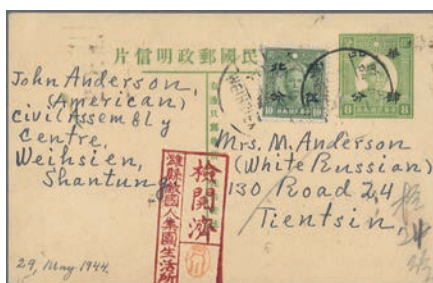 民國郵政明信片
John Anderson,
(American)
civil Assembly
Centre,
Weihsien,
Shantung
29, May 1944.
Mrs. M. Anderson
(White Russian)
130 Road 24
Tientsin,
檢閱濟
濰縣敵國人集團生活所
10
10
8
8